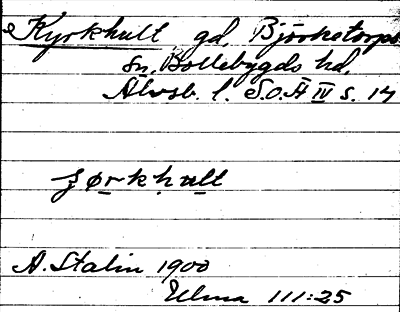 Kyrkhult gd. Björketorps
sn. Bollebygds hd.
Älvsb. l. S.O.Ä IV s. 14
ʒørkhult
A. Stalin 1900
Ulma 111:25